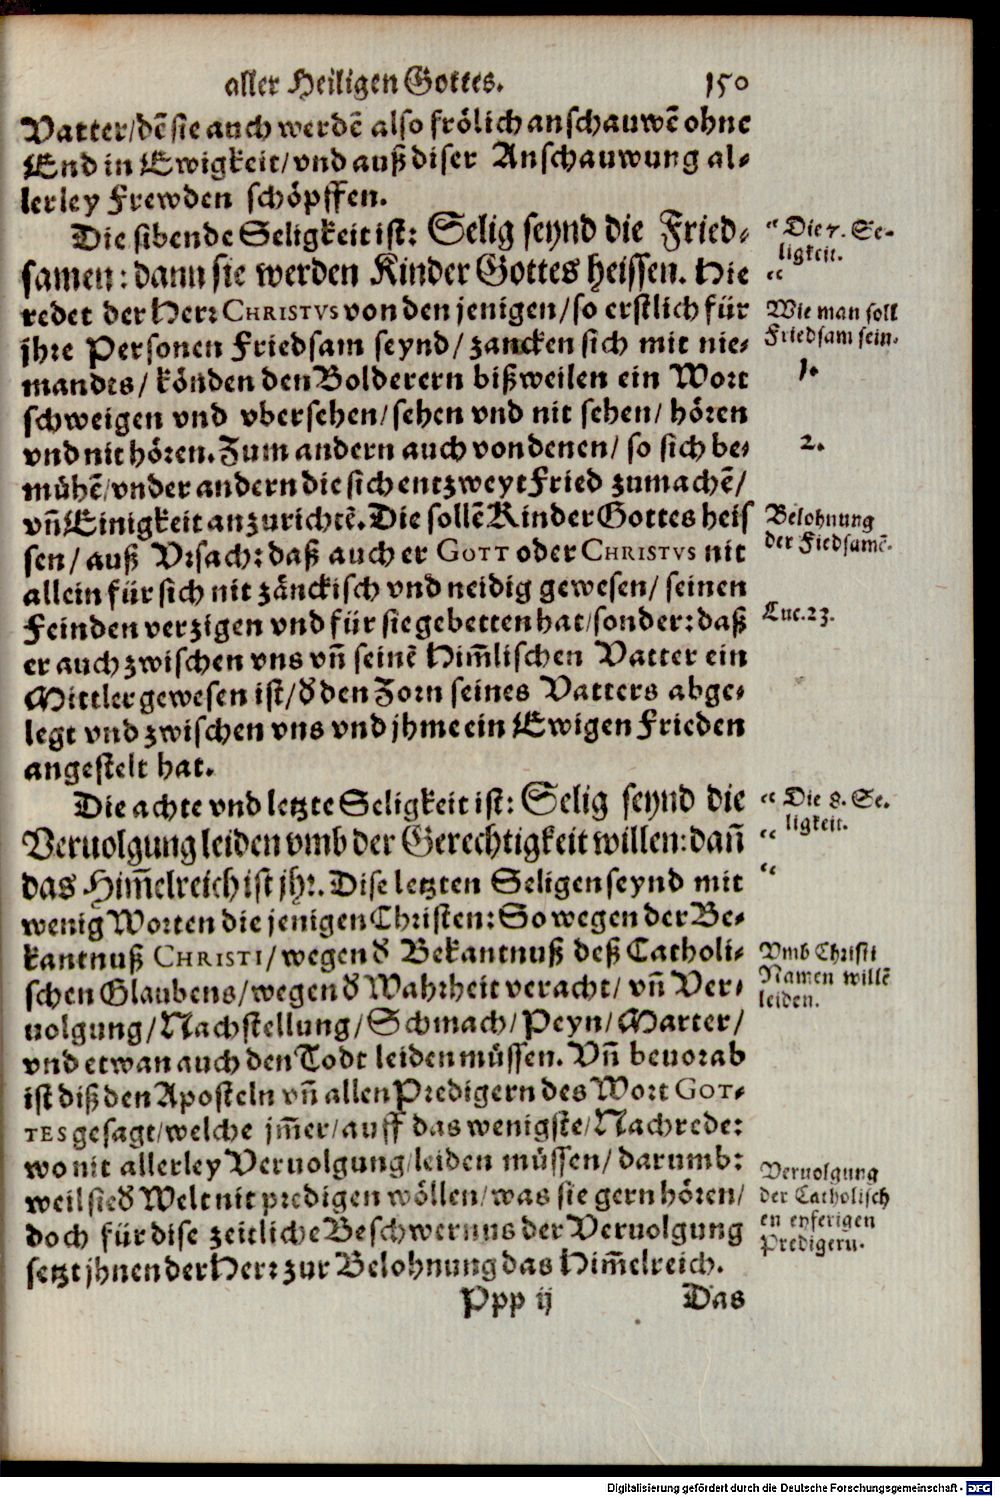 aller Heiligen Gottes. 150
Vatter/dẽ sie auch werdẽ also frölich anschauwẽ ohne
End in Ewigkeit/vnd auß diser Anschauwung al-
lerley Frewden schöpffen.
Die sibende Seligkeit ist: Selig seynd die Fried-
samen: dann sie werden Kinder Gottes heissen. Hie
redet der Herr CHRISTVS von den jenigen/so erstlich für
jhre Personen Friedsam seynd/ zancken sich mit nie-
mandts/ könden den Bolderern bißweilen ein Wort
schweigen vnd vbersehen/sehen vnd nit sehen/ hören
vnd nit hören. Zum andern auch von denen/ so sich be-
mühẽ/vnder andern die sich entzweyt Fried zumachẽ/
vñ Einigkeit anzurichtẽ. Die sollẽ Kinder Gottes heis
sen/ auß Vrsach: daß auch er GOTT oder CHRISTVS nit
allein für sich nit zänckisch vnd neidig gewesen/ seinen
Feinden verzigen vnd für sie gebetten hat/sonder: daß
er auch zwischen vns vñ seinẽ Him̃lischen Vatter ein
Mittler gewesen ist/ď den Zorn seines Vatters abge-
legt vnd zwischen vns vnd jhme ein Ewigen Frieden
angestelt hat.
Die achte vnd letzte Seligkeit ist: Selig seynd die
Veruolgung leiden vmb der Gerechtigkeit willen: dañ
das Him̃elreich ist jhr. Dise letzten Seligen seynd mit
wenig Worten die jenigen Christen: So wegen der Be-
kantnuß CHRISTI/wegen ď Bekantnuß deß Catholi-
schen Glaubens/wegen ď Wahrheit veracht/ vñ Ver-
uolgung/Nachstellung/Schmach/Peyn/Marter/
vnd etwan auch den Todt leiden müssen. Vñ beuorab
ist diß den Aposteln vñ allen Predigern des Wort GOT-
TES gesagt/welche jm̃er/auff das wenigste/Nachrede:
wo nit allerley Veruolgung/leiden müssen/ darumb:
weil sie ď Welt nit predigen wöllen/was sie gern hören/
doch für dise zeitliche Beschwernus der Veruolgung
setzt jhnen der Herr zur Belohnung das Him̃elreich.
Ppp ij Das
“ Die 7. Se-
ligkeit.
“
Wie man soll
Friedsam sein.
1.
2.
Belohnung
der Fiedsamẽ.
Luc. 23.
“ Die 8. Se-
ligkeit.
“
“
Vmb Christi
Namen willẽ
leiden.
Veruolgung
der Catholisch
en eyferigen
Predigern.
Digitalisierung gefördert durch die Deutsche Forschungsgemeinschaft - DFG